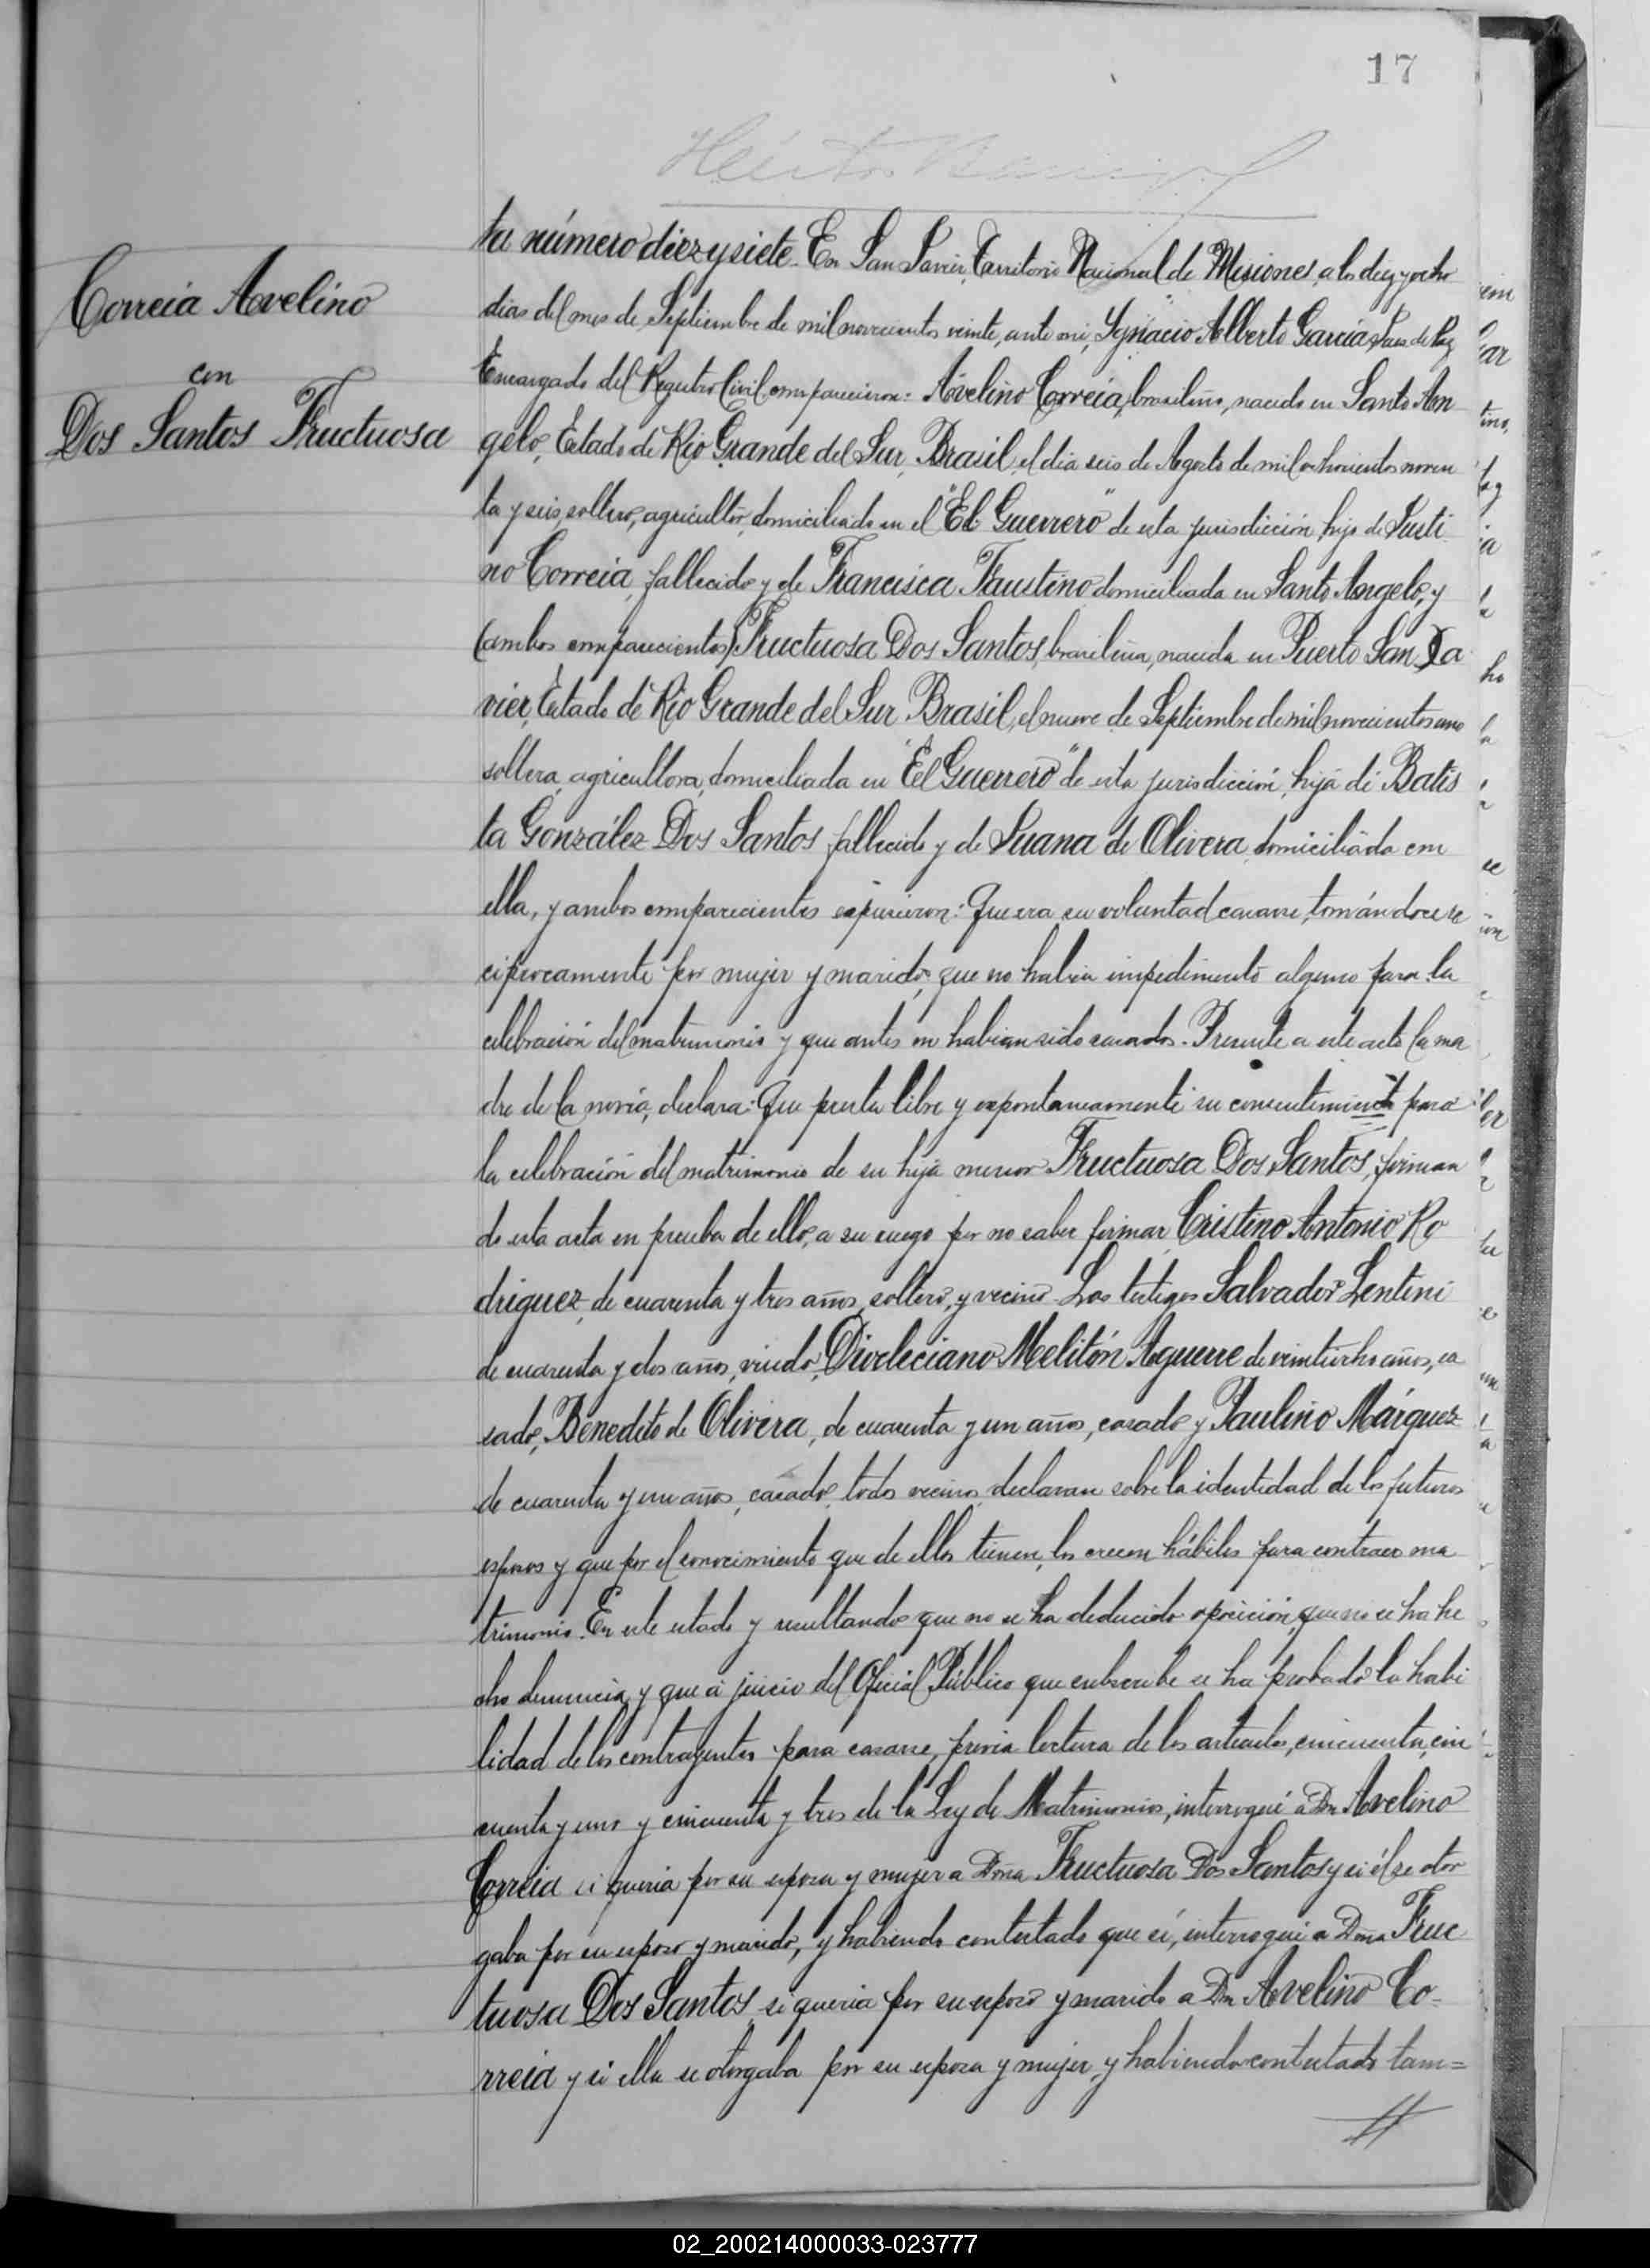 17
Correia Avelino
con
Dos Santos Fructuosa
ta número diez y siete. En San Javier, Territorio Nacional de Misiones, a los diez y ocho
dias del mes de Septiembre de mil novecientos veinte, ante mi, Ygnacio Alberto García, Juez de Paz
Encargado del Registro Civil comparecieron: Avelino Correia, brasileño, nacido en Santo An
gelo, Estado de Rio Grande del Sur, Brasil, el dia seis de Agosto de mil ochocientos noven
ta y seis, soltero, agricultor, domiciliado en el "El Guerrero" de esta jurisdicción, hijo de Justi
no Correia, fallecido y de Francisca Faustino domiciliada en Santo Angelo, y
(ambos comparecientes) Fructuosa Dos Santos, brasileña, nacida en Puerto San Xa
vier, Estado de Rio Grande del Sur Brasil, el nueve de Septiembre de mil novecientos uno
soltera, agricultora, domiciliada en "El Guerrero" de esta jurisdicción, hija de Batis
ta González Dos Santos fallecido y de Juana de Olivera, domiciliada con
ella, y ambos comparecientes expusieron: Que era su voluntad casarse, tomándose re
ciprocamente por mujer y marido, que no habia impedimento alguno para la
celebración del matrimonio y que antes no habian sido casados. Presente a este acto la ma
dre de la novia, declara: Que presta libre y espontaneamente su consentimiento para
la celebración del matrimonio de su hija menor Fructuosa Dos Santos, firman
do esta acta en prueba de ello, a su ruego por no saber firmar, Cristino Antonio Ro
driguez, de cuarenta y tres años, soltero, y vecino. Los testigos Salvador Lentini
de cuarenta y dos años, viudo, Diocleciano Melitón Aguerre de veintiocho años, ca
sado, Benedito de Olivera, de cuarenta y un años, casado y Paulino Márquez
de cuarenta y un años, casado, todos vecinos, declaran sobre la identidad de los futuros
esposos y que por el conocimiento que de ellos tienen, los creen hábiles para contraer ma
trimonio. En este estado y resultando que no se ha deducido oposición, que no se ha he
cho denuncia, y que a juicio del Oficial Público que subscribe se ha probado la habi
lidad de los contrayentes para casarse, previa lectura de los articulos, cincuenta, cin
cuenta y uno y cincuenta y tres de la Ley de Matrimonios, interrogué a Don Avelino
Correia si queria por su esposa y mujer a Doña Fructuosa Dos Santos y si él se otor
gaba por su esposo y marido, y habiendo contestado que si, interrogué a Doña Fruc
tuosa Dos Santos, si queria por su esposo y marido a Don Avelino Co-
rreia y si ella se otorgaba por su esposa y mujer, y habiendo contestado tam=
02_200214000033-023777